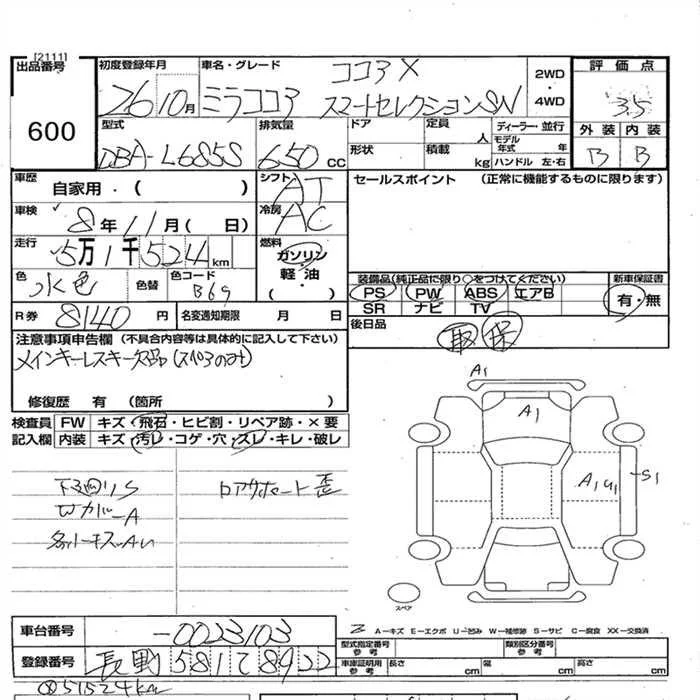 [2111]
出品番号 600
初度登録年月 26 10月
車名・グレード ココアX
ミラココア スマートセレクションSN
2WD・4WD
評価点 3.5
外装 内装
B B
型式 DBA-L685S
排気量 650 CC
ドア 定員 人
形状 積載 kg
ディーラー・並行
モデル年式 年
ハンドル 左・右
車歴 自家用・( )
シフト AT
車検 8年11月( 日)
冷房 AC
走行 5万1千524km
燃料 ガソリン 軽油・( )
色 水色 色替
色コード B69
R券 8140円
名変通知期限 月 日
セールスポイント (正常に機能するものに限ります)
装備品(純正品に限り○をつけてください)
新車保証書
PS PW ABS エアB
SR ナビ TV
有・無
後日品 取 保
注意事項申告欄 (不具合内容等は具体的に記入して下さい)
メインキーレスキー欠品(スペアのみ)
修復歴 有 (箇所 )
検査員記入欄
FW キズ・飛石・ヒビ割・リペア跡・×要
内装 キズ・汚レ・コゲ・穴・スレ・キレ・破レ
下廻りS
WカバーA
ロアサポート歪
A1
A1
A1U1
S1
スペア
A—キズ E—エクボ U—凹み W—補修跡 S—サビ C—腐食 XX—交換済
車台番号 -0023103
登録番号 長野581て8922
型式指定番号 参考
類別区分番号 参考
車庫証明用 参考 長さ cm 幅 cm 高さ cm
51524km